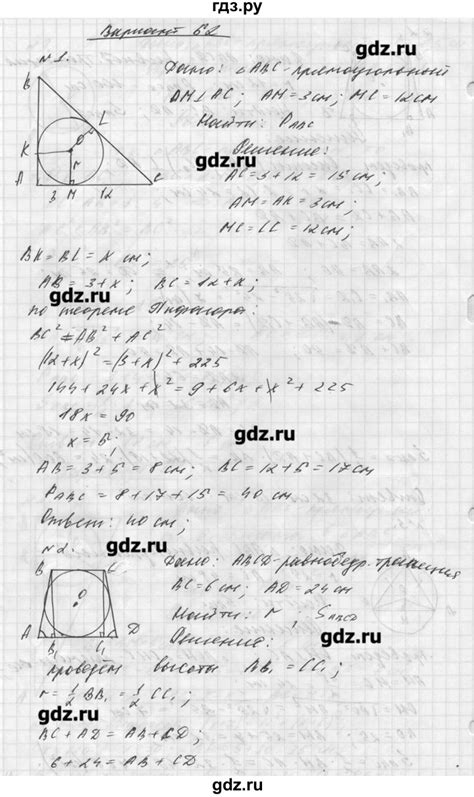 гдз.ру
Вариант Б2
gdz.ru
№ 1.
Дано: △ABC - прямоугольный
OM⊥AC; AM = 3см; MC = 12см
Найти: P_ABC
gdz.ru
Решение:
AC = 3 + 12 = 15см;
AM = AK = 3см;
MC = LC = 12см;
B
L
K
O
r
A
3
M
12
C
BK = BL = x см;
AB = 3 + x; BC = 12 + x;
gdz.ru
по теореме Пифагора:
BC² = AB² + AC²
(12 + x)² = (3 + x)² + 225
144 + 24x + x² = 9 + 6x + x² + 225
18x = 90
gdz.ru
x = 5;
AB = 3 + 5 = 8см; BC = 12 + 5 = 17см
P_ABC = 8 + 17 + 15 = 40 см
Ответ: 40 см;
gdz.ru
№ 2.
Дано: ABCD - равнобедр. трапеция
BC = 6см; AD = 24см
Найти: r; S_ABCD
gdz.ru
Решение:
B
C
O
A
B₁
C₁
D
проведём высоты BB₁ = CC₁;
r = ½ BB₁ = ½ CC₁;
gdz.ru
BC + AD = AB + CD;
6 + 24 = AB + CD
gdz.ru